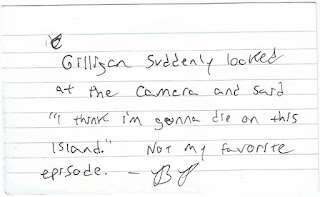 Gilligan suddenly looked
at the camera and said
"I think i'm gonna die on this
island." Not my favorite
episode. —